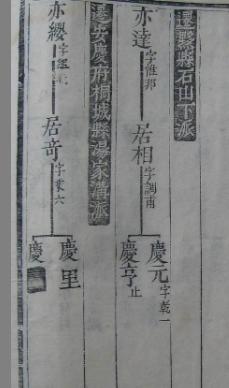 遷黟縣石山下派
亦達 字惟邦
居相 字調甫
慶元 字乾一
慶亨 止
遷安慶府桐城縣湯家溝派
亦纓
居奇 字蒙六
慶里
慶